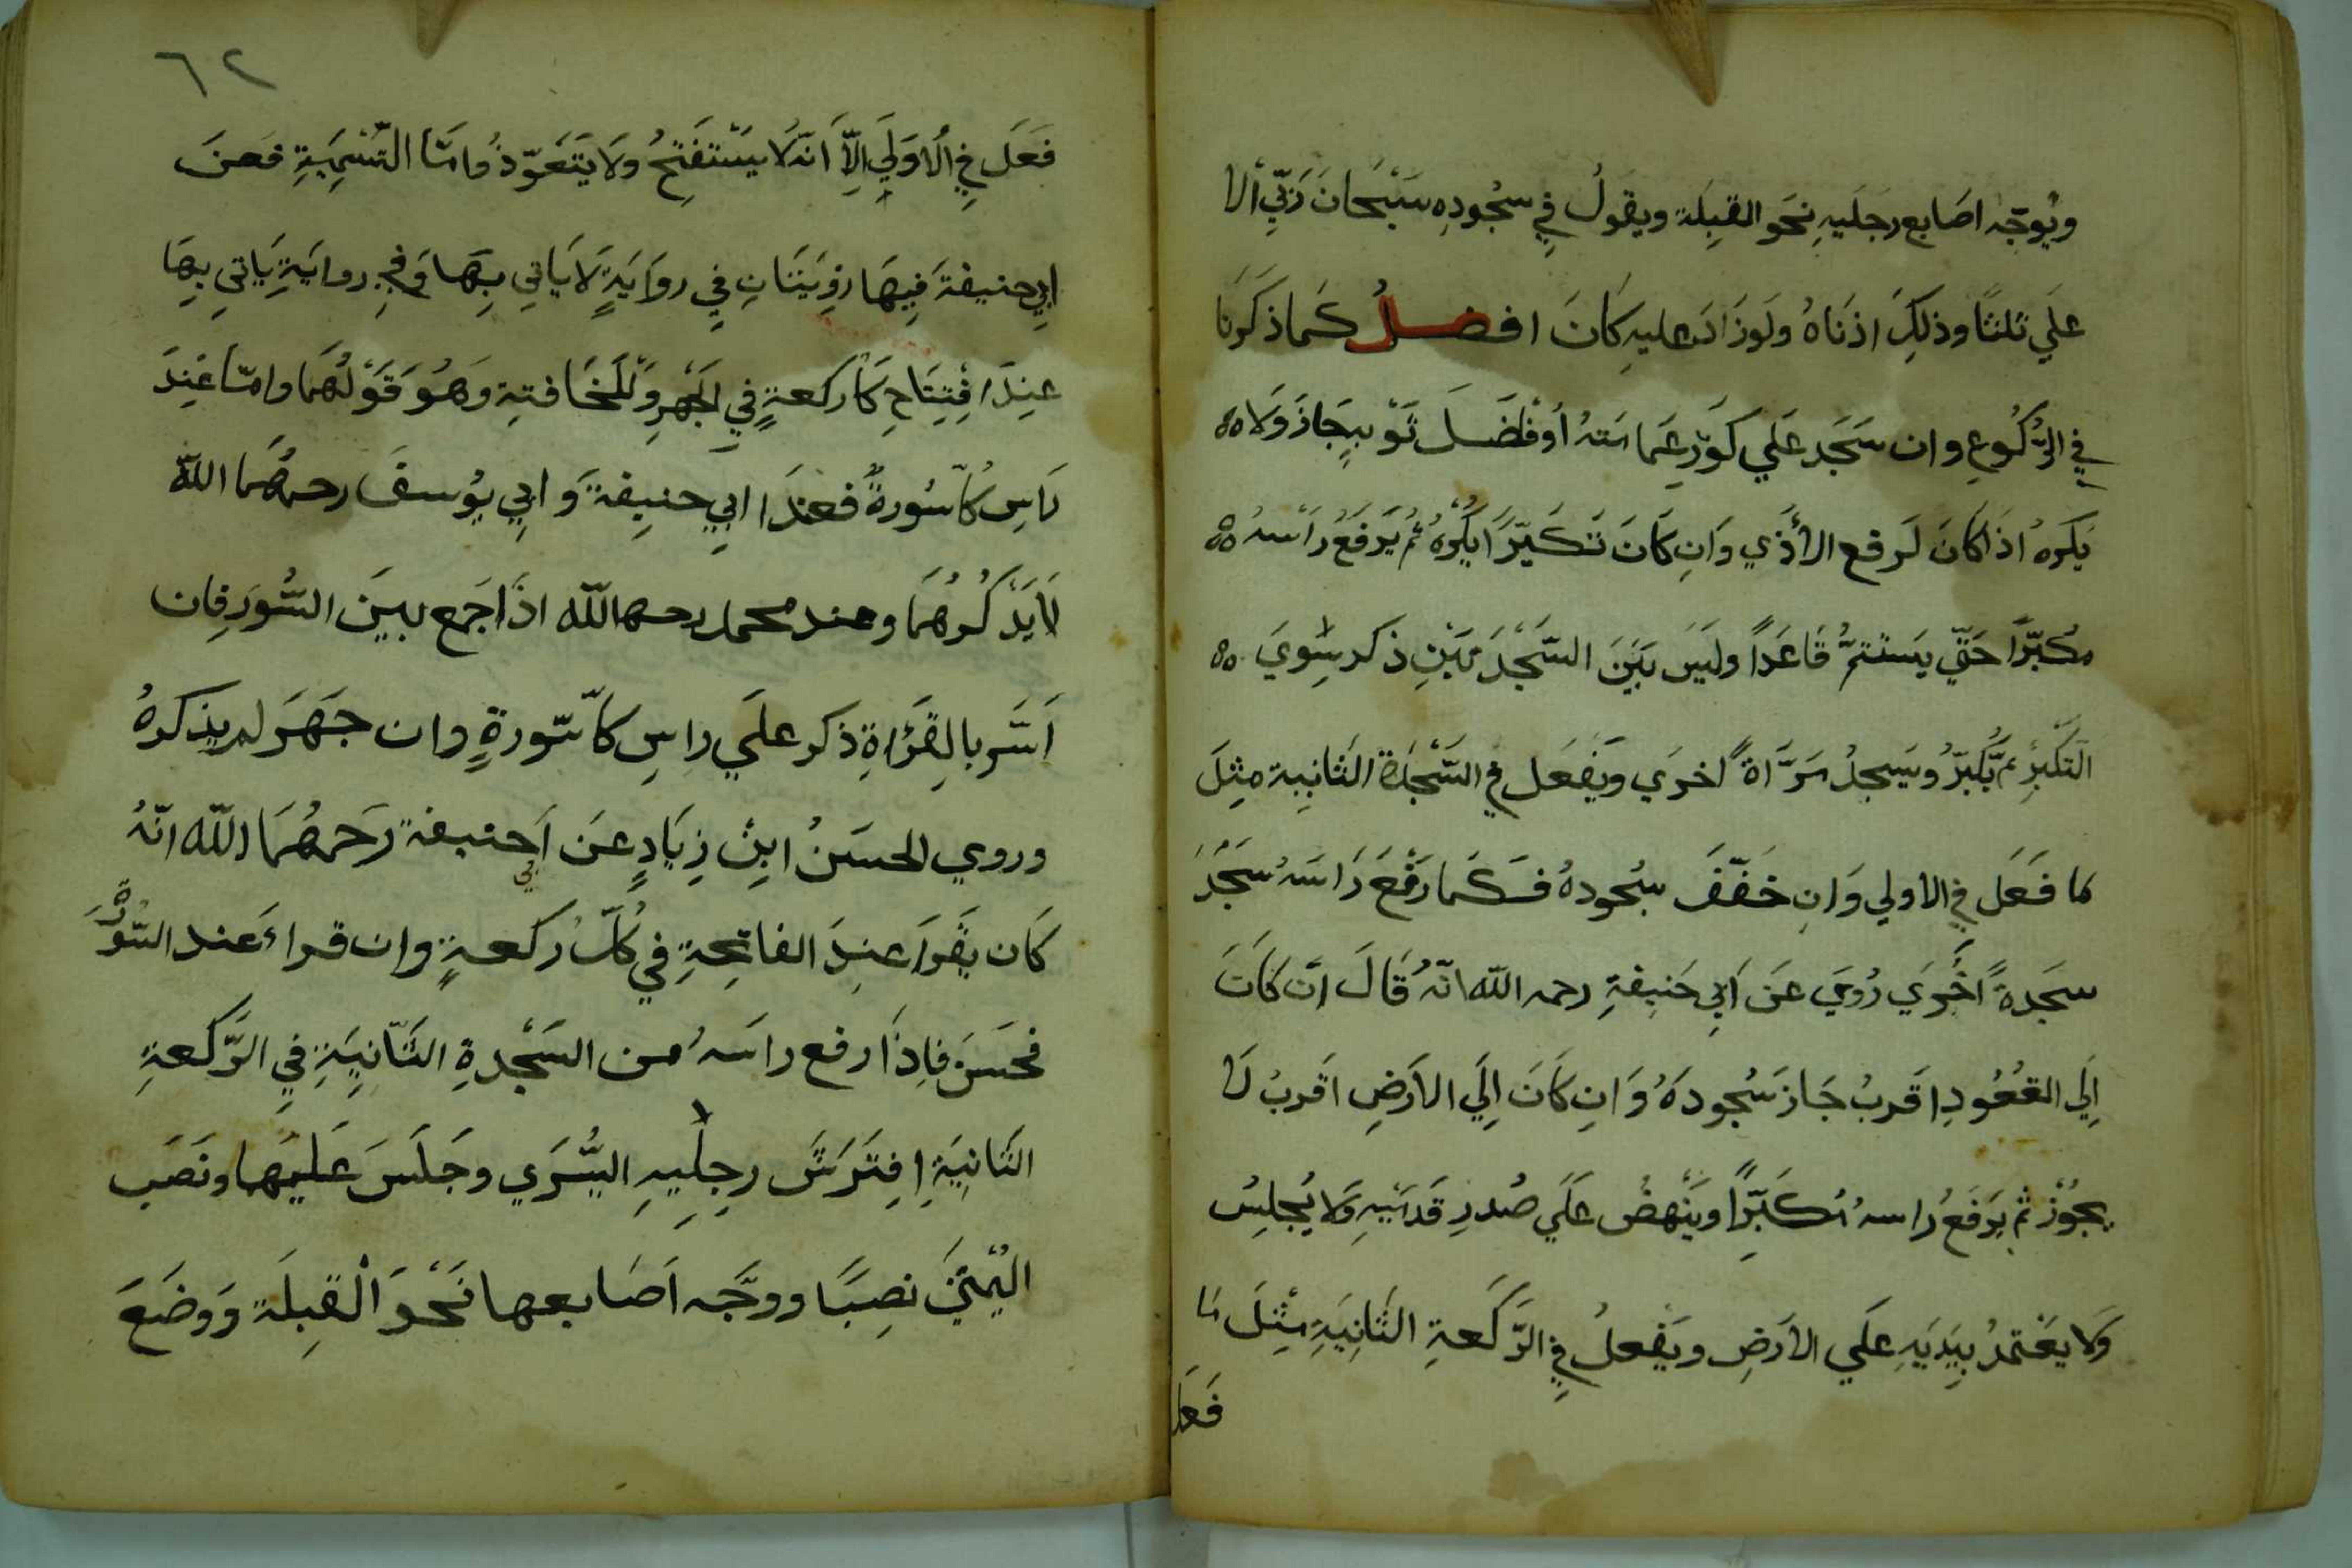 ويُوجّه اصَابع رجَليهِ نحَو القِبلَة ويقولُ في سجُودِه سَبْحَانَ رَبّيَ الا
علَي ثلثًا وذلِكَ ادَناهُ ولَوزَادَ عليهِ كَانَ افضلُ كَما ذكَرنَا
في الرُّكُوعِ وان سَجَد عَلي كَورِ عمَامَتهُ اَوفَاضَلَ ثَوبِهِ جَازَ وَلَا
يُكرَهُ اذَا كَانَ لَرفع الاَذَي وَانِ كَانَ تَكَبّرًا يُكْرَهُ ثُم يَرفَعُ رَاْسهُ
مكبّرًا حَتّي يَستَتمُّ قَاعدًا ولَيسَ بَيَنَ السّجْدَتَينِ ذكر سِويَ
التَكبِيرِ ثم يُكبّرُ ويَسجدُ مَرَّاةً اُخرَي ويَفعَل في السَّجْدَة الثَانِية مِثِلَ
ما فَعَل في الاولي وَانِ خَفّفَ سجُودهُ فَكَما رَفعَ رَاسَهُ سَجَدَ
سجَدةً اُخْرَي رُوِيَ عَن اَبِي حَنِيفةِ رحمه الله انّهُ قَالَ ان كَانَ
اِلَي القعُودِ اقَربُ جَاز سُجودَهُ وَانِ كَانَ اِلَي الاَرضِ اقَربُ لَا
يجُوزُ ثم يَرفَعُ رَاسهُ مُكَبّرًا ويَنْهضُ عَلَي صُدورِ قَدمَيهِ وَلَا يُجلِسُ
وَلَا يعَتمدُ بِيَديَهِ علَي الاَرضِ ويَفعلُ في الرَّكعَةِ الثَانِيَةِ مثِلَ مَا
فَعَل
٦٢
فَعَل في الُاوَلَي اِلّا اَنّهُ لَا يَسْتفَتِحُ ولَا يَتَعَوّذُ وامَّا التّسْمِيَةِ فعَنَ
ابِي حنيفةَ فِيهَا رِوَيَتَانِ فِي روَايَةٍ لَا يَاتي بِهَا وَفي روايَةِ يَاتي بِهَا
عِندَ افْتِتَاحِ كَلّ ركعةٍ فيِ الجَهرِ وَلْلخَافتةِ وَهُوَ قَوْلهُمَا وامّا عَنِدَ
رَاسِ كلّ سُورةً فَعندَ ا ابي حنيِفةَ وَ ابِي يُوسفَ رحمهُما اللّه
لَا يَذكُرهُمَا وعند محمد رحمه اللّه اذَا جَمع بَينَ السُّورَ فِان
اَسَّر بالِقرَاةِ ذكر علَي راسِ كلّ سّورةٍ وان جهَرَ لم يذكرهُ
وروي الحسَنُ ابِنْ زِيَادٍ عَن اَبي حنيفة رَحمهُمَا اللّه انّهُ
كَان يَقَرَا عنِدَ الفاتِحةِ في كُلّ ركعةٍ وان قراءَ عند السّورَة
فحسَن فِاذَا رفع راسَهُ من السّجْدةِ الثّانِيَةِ فيِ الرَّكعةِ
الثَانيَةِ افِتَرَشَ رجِليِهِ اليُسْرَي وجَلَسَ عَليهَا ونَصَب
اليُمْنيَ نصِبًا ووجَّه اَصَابعها نَحْوَ الْقِبلَة وَوضَعَ